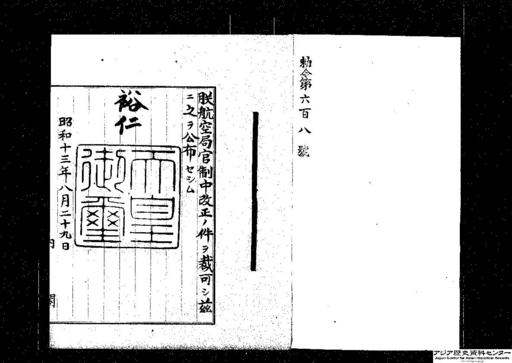 勅令第六百八號
朕航空局官制中改正ノ件ヲ裁可シ茲
ニ之ヲ公布セシム
裕仁
天皇御璽
昭和十三年八月二十九日
内閣
アジア歴史資料センター
Japan Center for Asian Historical Records